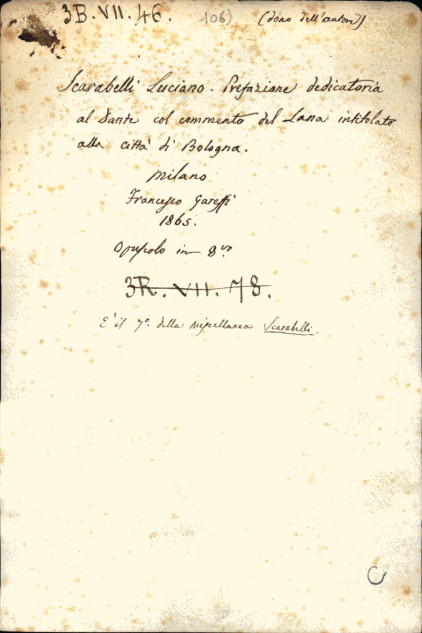 3B. VII. 46. 106) (dono dell'autore)
Scarabelli Luciano. Prefazione dedicatoria
al Dante col commento del Lana intitolato
alla città di Bologna.
Milano
Francesco Gareffi
1865.
Opuscolo in 8.vo
3R. VII. 78.
E' il 7º. della miscellanea Scarabelli.